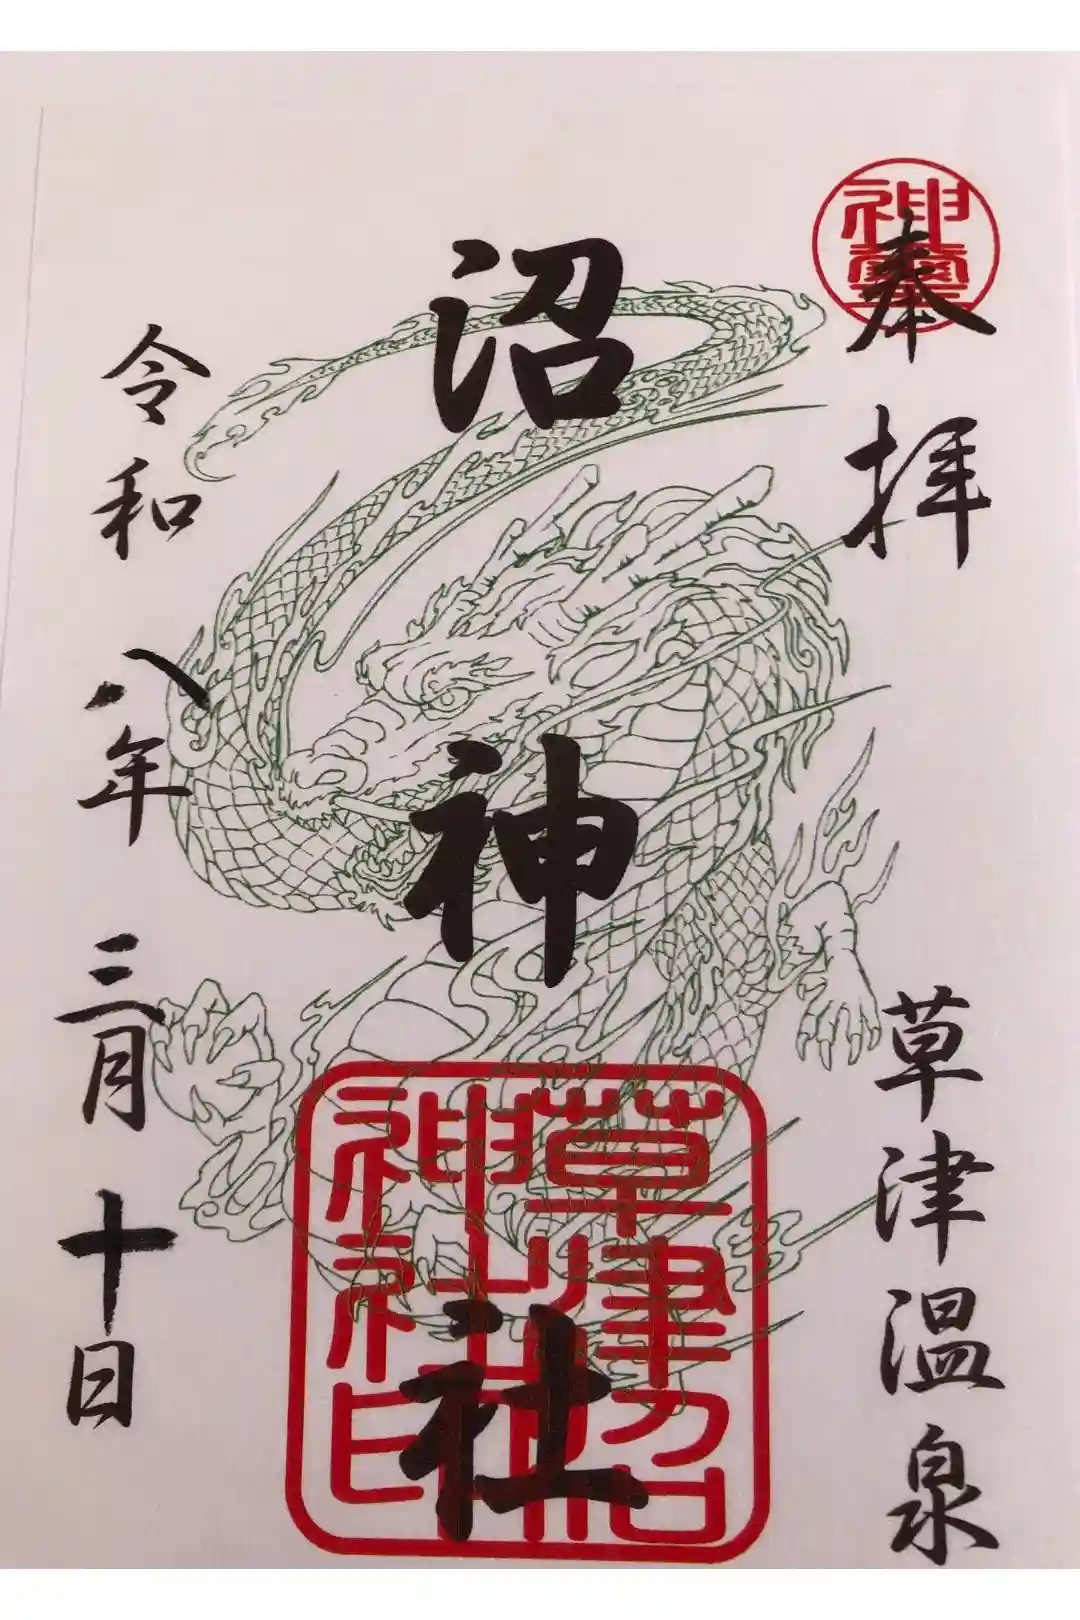 神璽
奉拝
草津温泉
沼神社
草津沼
神社印
令和八年三月十日